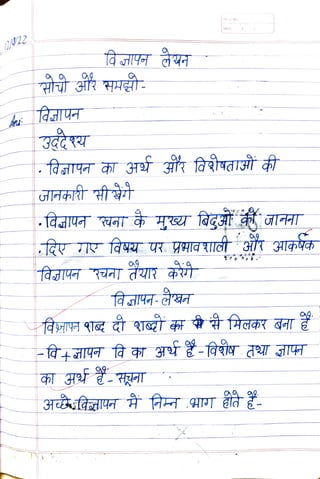 12/9/22
विज्ञापन लेखन
सोचो और समझो-
Ans: विज्ञापन
उद्देश्य
. विज्ञापन का अर्थ और विशेषताओं की
जानकारी सीखेंगे
. विज्ञापन रचना के मुख्य बिंदुओं की जानना
. दिए गए विषय पर प्रभावशाली और आकर्षक
विज्ञापन रचना तैयार करेंगे
विज्ञापन-लेखन
विज्ञापन शब्द दो शब्दों का से मिलकर बना हैं
- वि + ज्ञापन वि का अर्थ हैं - विशेष तथा ज्ञापन
का अर्थ हैं - सूचना
अच्छे विज्ञापन में निम्न भाग होते हैं-